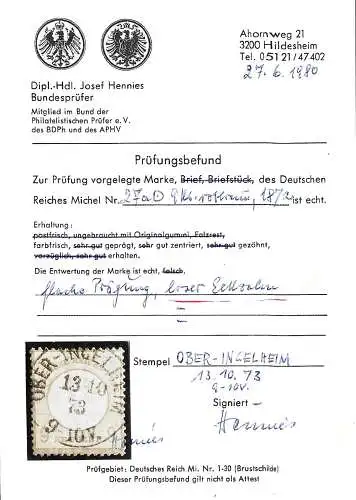 Ahornweg 21
3200 Hildesheim
Tel. 05121/47402
27.6.1980
Dipl.-Hdl. Josef Hennies
Bundesprüfer
Mitglied im Bund der
Philatelistischen Prüfer e.V.
des BDPh und des APHV
Prüfungsbefund
Zur Prüfung vorgelegte Marke, Brief, Briefstück, des Deutschen
Reiches Michel Nr. 27a 9 Kr. rotbraun, 1872 ist echt.
Erhaltung:
postfrisch, ungebraucht mit Originalgummi, Falzrest,
farbfrisch, sehr gut geprägt, sehr gut zentriert, sehr gut gezähnt,
vorzüglich, sehr gut erhalten.
Die Entwertung der Marke ist echt, falsch.
flache Prägung, loser Eckzahn
Stempel OBER-INGELHEIM
13.10.73
9-10V.
Signiert
Hennies
OBER-INGELHEIM
13 10
73
9-10V.
Hennies
Prüfgebiet: Deutsches Reich Mi. Nr. 1-30 (Brustschilde)
Dieser Prüfungsbefund gilt nicht als Attest